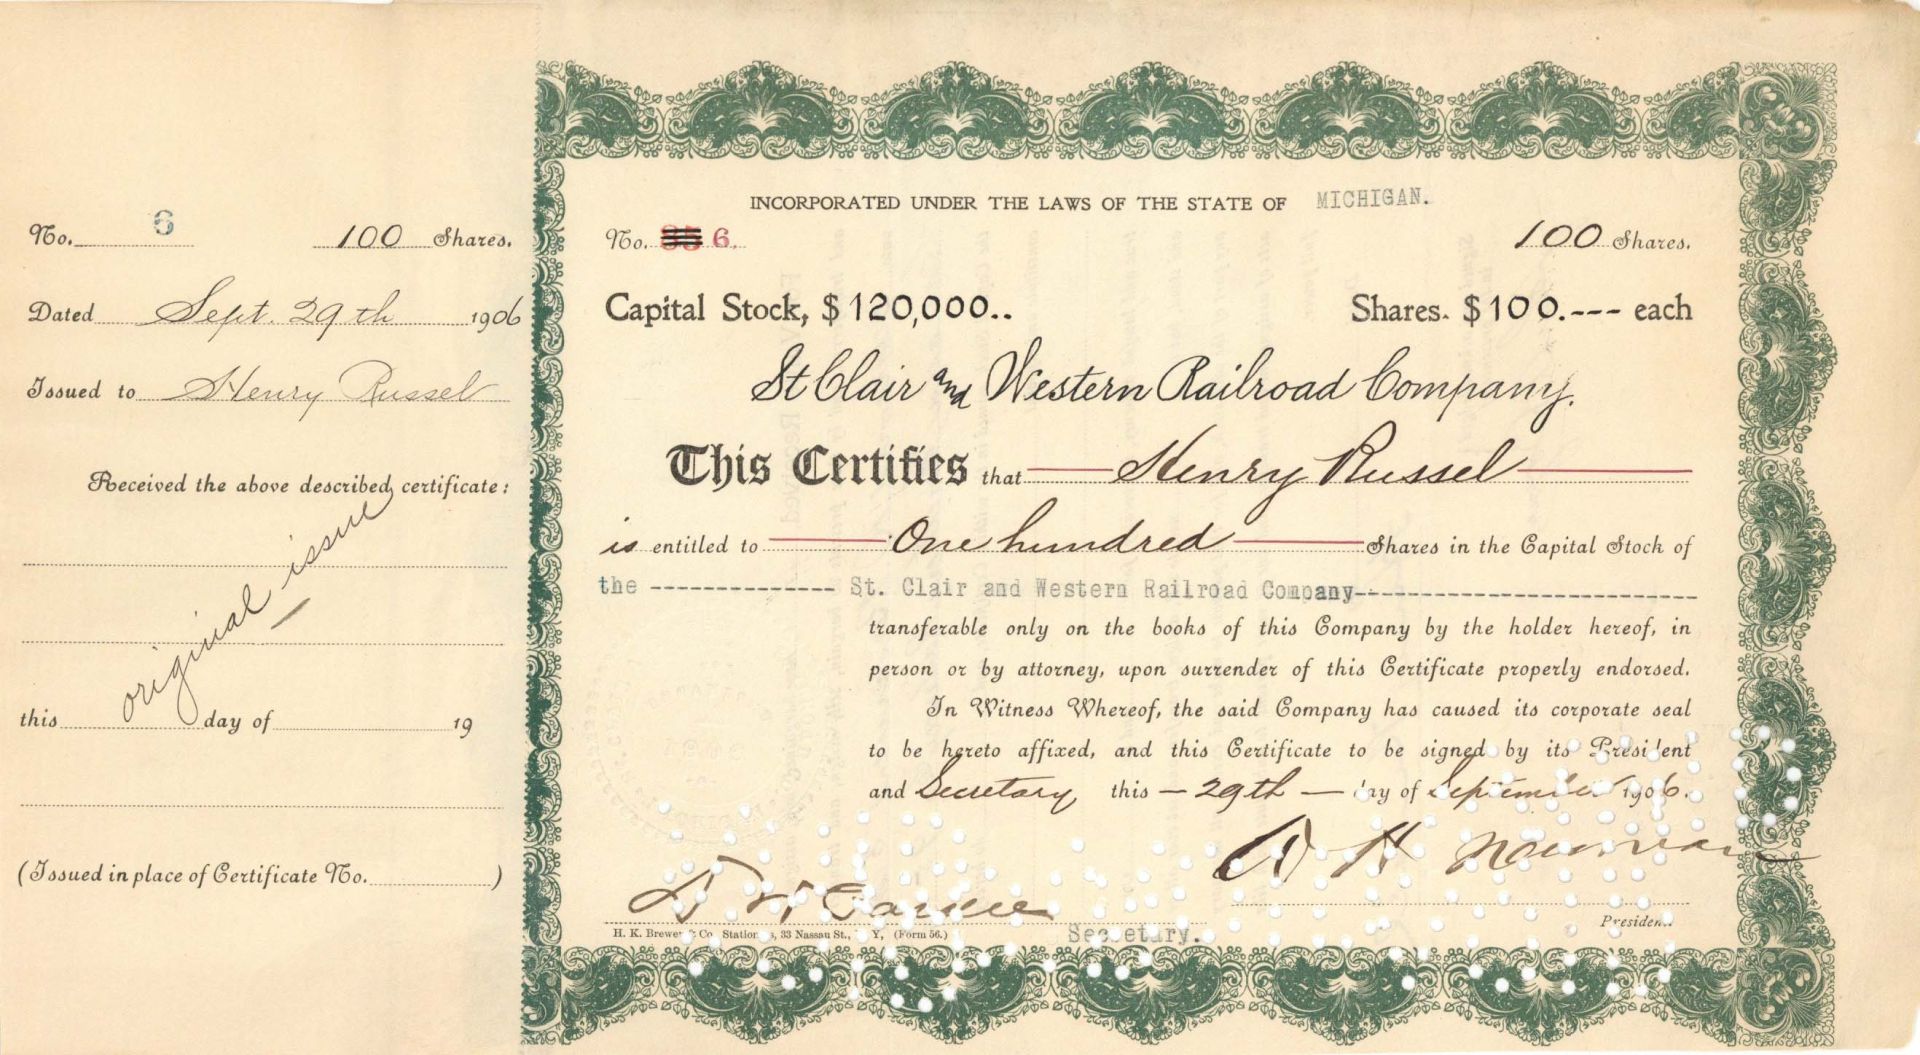 No. 6 100 Shares.
Dated Sept. 29th 1906
Issued to Henry Russel
Received the above described certificate:
original issue
this day of 19
(Issued in place of Certificate No. )
INCORPORATED UNDER THE LAWS OF THE STATE OF MICHIGAN.
No. 6. 100 Shares.
Capital Stock, $120,000.. Shares. $100.--- each
St Clair and Western Railroad Company.
This Certifies that Henry Russel
is entitled to One hundred Shares in the Capital Stock of
the ------------- St. Clair and Western Railroad Company-------------------------
transferable only on the books of this Company by the holder hereof, in
person or by attorney, upon surrender of this Certificate properly endorsed.
In Witness Whereof, the said Company has caused its corporate seal
to be hereto affixed, and this Certificate to be signed by its President
and Secretary this — 29th — day of September 1906.
W H Newman
D W
H. K. Brewer & Co. Stationers, 33 Nassau St., N. Y. (Form 56.)
Secretary.
President.